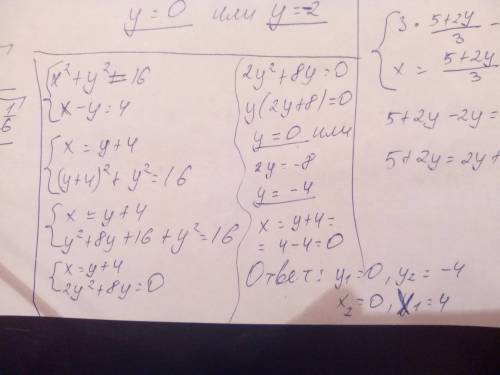 y = 0 или y = -2
x² + y² = 16
x - y = 4
x = y + 4
(y+4)² + y² = 16
x = y + 4
y² + 8y + 16 + y² = 16
x = y + 4
2y² + 8y = 0
2y² + 8y = 0
y(2y+8) = 0
y = 0 или
2y = -8
y = -4
x = y + 4 =
= 4 - 4 = 0
Ответ: y₁ = 0, y₂ = -4
x₂ = 0, x₁ = 4
3 · (5+2y)/3 -
x = (5+2y)/3
5 + 2y - 2y =
5 + 2y = 2y +